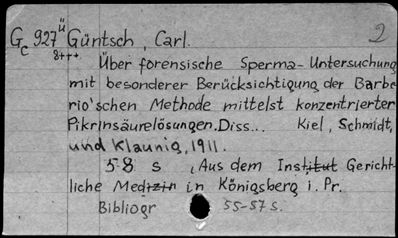 Gc 927ü Güntsch, Carl. 2
8+++
Über forensische Sperma-Untersuchung
mit besonderer Berücksichtigung der Barbe
rio'schen Methode mittelst konzentrierter
Pikrinsäurelösungen. Diss... Kiel, Schmidt,
und Klaunig, 1911.
58 s , Aus dem Institut Gericht-
liche Medizin in Königsberg i. Pr.
Bibliogr 55-57 s.